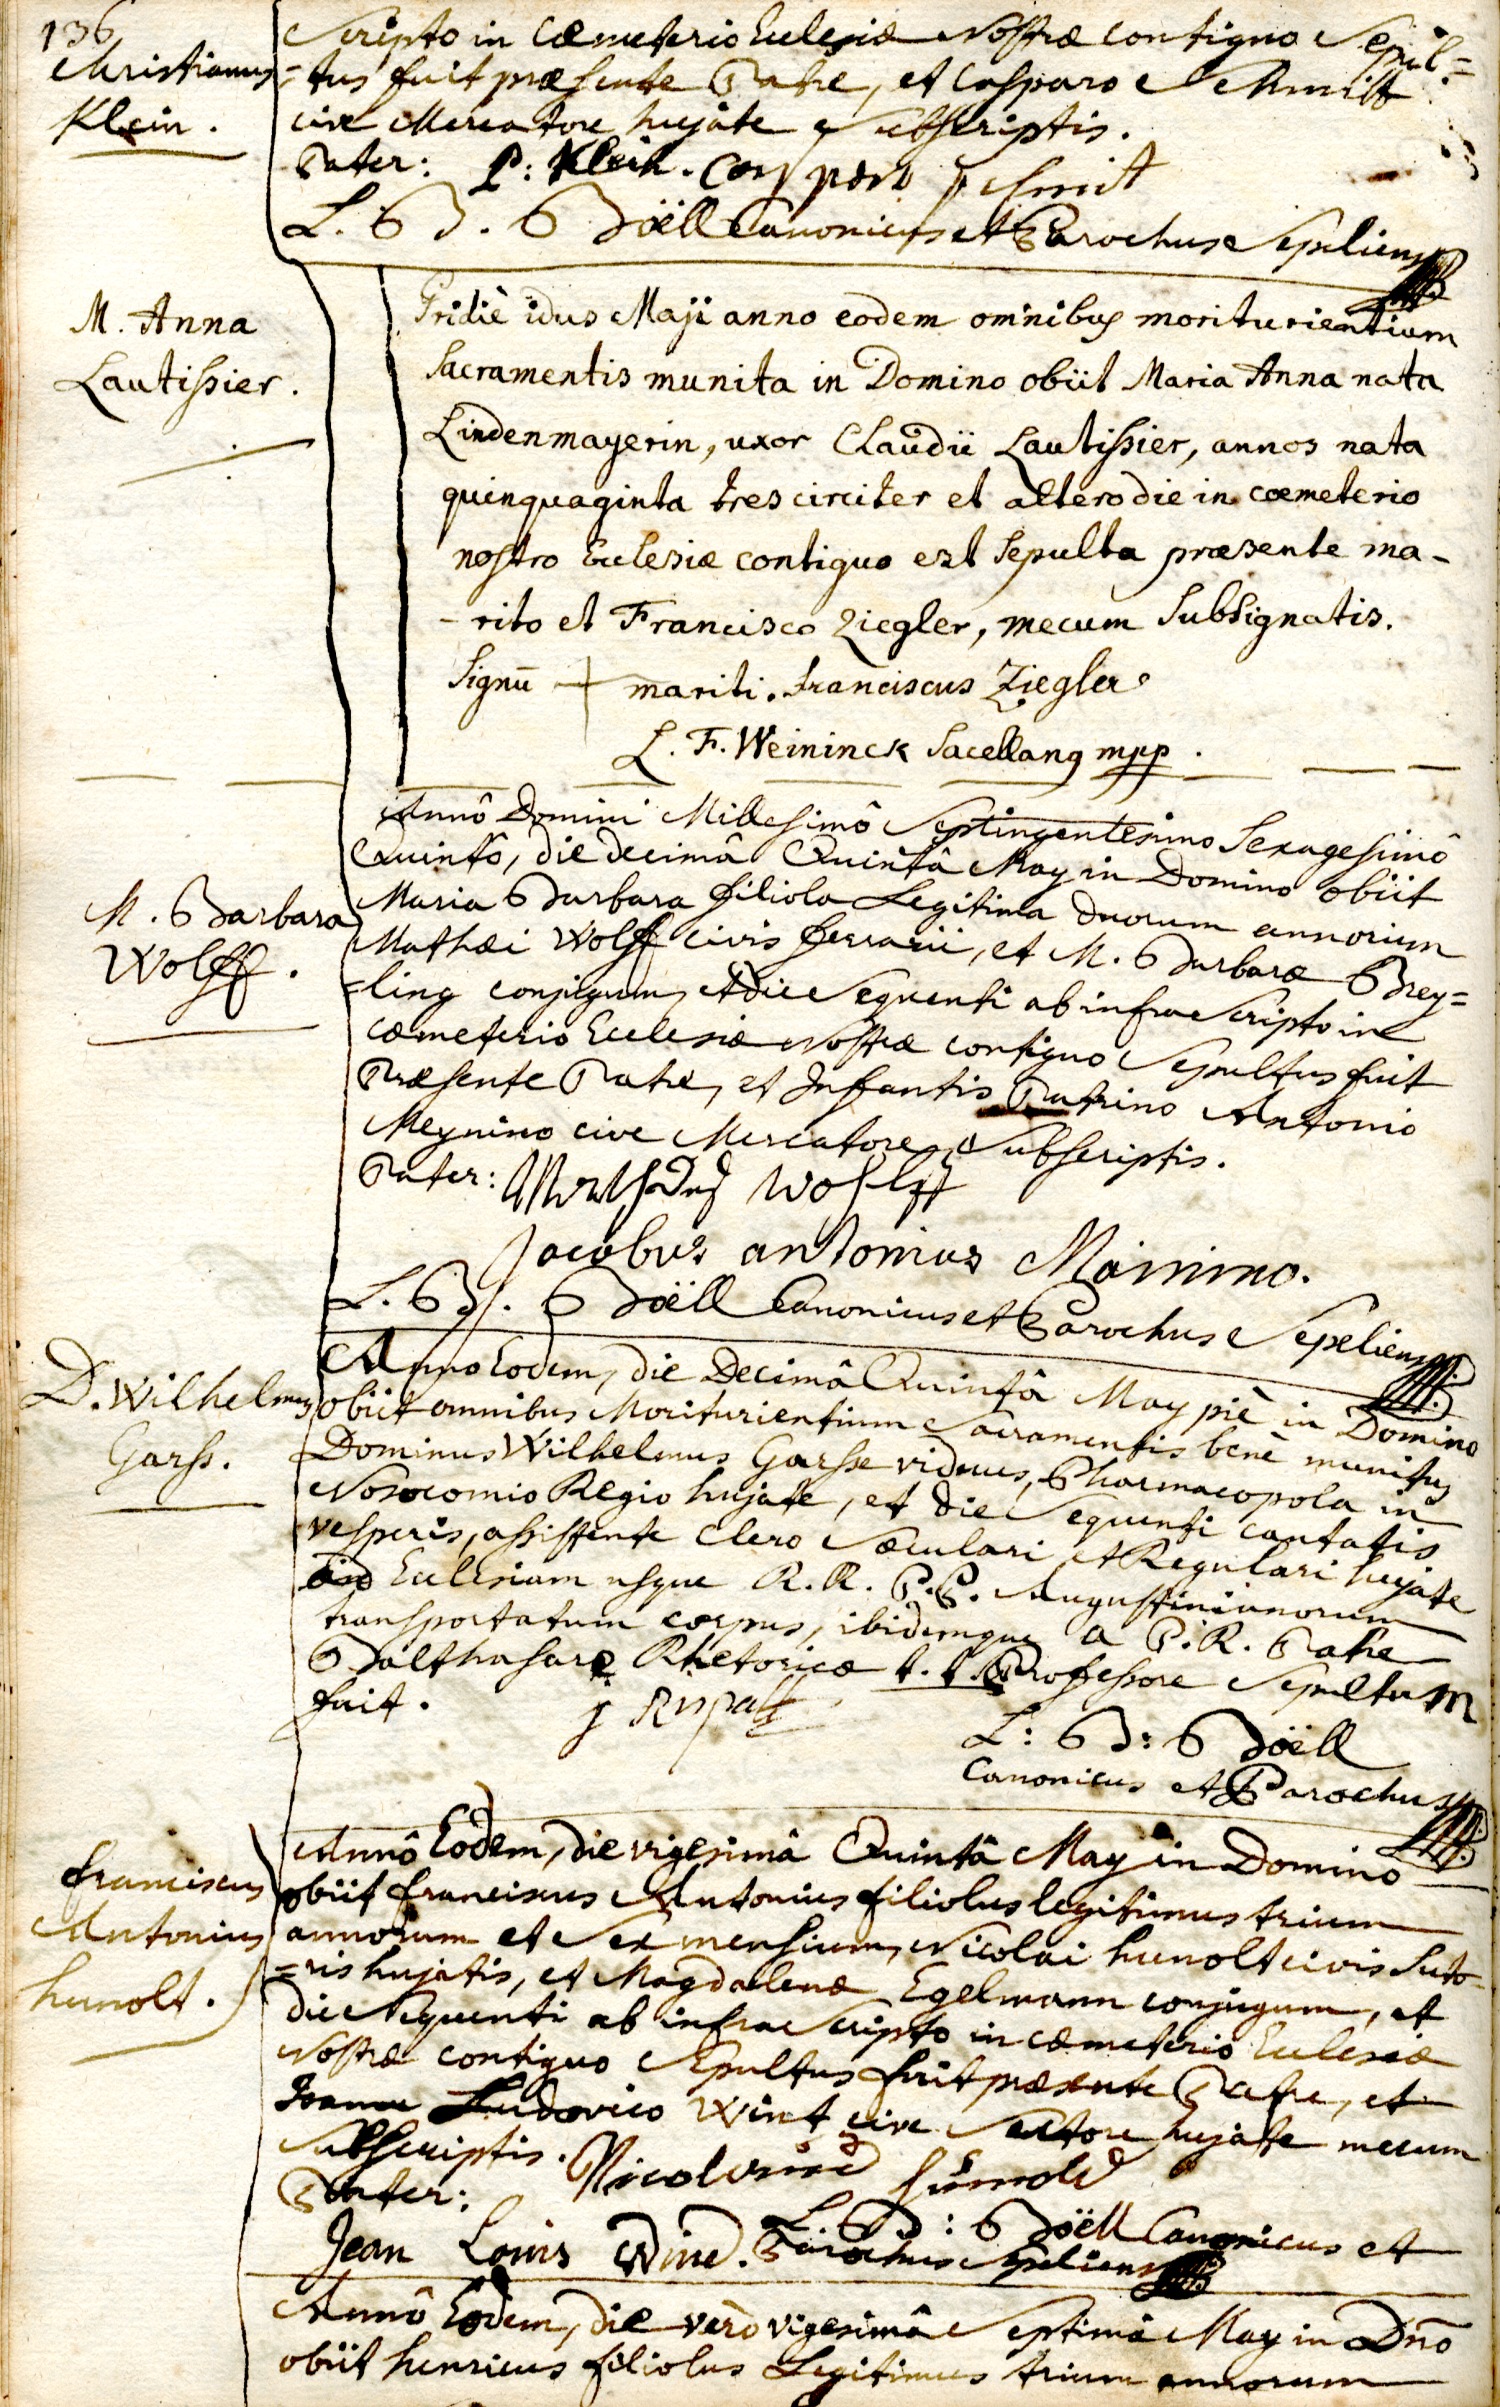 136
Christianus
Klein.
scripto in Cœmeterio Ecclesiæ Nostræ contiguo Sepul=
=tus fuit præsente Patre, et Casparo Schmitt
cive Mercatore hujate Subscriptis.
Pater: P: Klein. Casspar schmit
L. B. Boëll Canonicus et Parochus Sepeliens
M. Anna
Lautissier.
Pridiè idus Maji anno eodem omnibus moriturientium
Sacramentis munita in Domino obiit Maria Anna nata
Lindenmayerin, uxor Claudii Lautissier, annos nata
quinquaginta tres circiter et altero die in cœmeterio
nostro Ecclesiæ contiguo est Sepulta præsente ma-
-rito et Francisco Ziegler, mecum Subsignatis.
Signū + mariti. franciscus Ziegler
L. F. Weininck Sacellanꝯ mpp.
M. Barbara
Wolff.
Annô Domini Millesimô Septingentesimo Sexagesimô
Quintô, die decimâ Quintâ May in Domino obiit
Maria Barbara filiola Legitima duorum annorum
Mathæi Wolff civis ferrarii, et M. Barbaræ Brey=
=ling conjugum, et die Sequenti ab infra Scripto in
cœmeterio Ecclesiæ Nostræ contiguo Sepultus fuit
Præsente Patre, et Infantis Patrino Antonio
Meynino cive Mercatore, Subscriptis.
Pater: Mathæus Wolff
Jacobus antonius Mainino.
L. B. Boëll Canonicus et Parochus Sepeliens
D. Wilhelmus
Garss.
Anno Eodem, die Decimâ Quintâ May piè in Domino
obiit omnibus Moriturientium Sacramentis benè munitus
Dominus Wilhelmus Garsse viduus, Pharmacopola in
Nosocomio Regio hujate, et die Sequenti cantatis
vesperis, assistente Clero Sæculari et Regulari hujate
Ecclesiam usque R. R. P.P. Augustinianorum
transportatum corpus, ibidemque a P. R. Patre
Balthasare Rhetoricæ t. t. Professore Sepultum
fuit.
L: B: Boëll
Canonicus et Parochus
franciscus
Antonius
hunolt.
Annô Eodem, die vigesimâ Quintâ May in Domino
obiit franciscus Antonius filiolus legitimus trium
annorum et Sex mensium, Nicolai hunolt civis Suto
=ris hujatis, et Magdalenæ Egelmann conjugum, et
die Sequenti ab infra Scripto in cœmeterio Ecclesiæ
Nostræ contiguo Sepultus fuit præsente Patre, et
Joanne Ludovico Wint cive Sartore hujate mecum
Subscriptis.
Pater: Nicolaus hunold
Jean Louis Wind. L. B: Boëll Canonicus et
Parochus Sepeliens
Annô Eodem, die verò vigesimâ Septimâ May in Dn̄o
obiit henricus filiolus Legitimus trium annorum